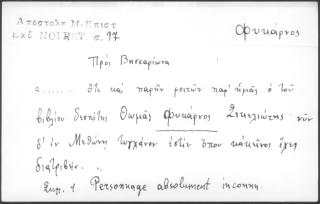 Ἀποστόλη Μ. Ἐπιστ
ἐκδ NOIRET σ. 97
Φυκάρνος
Πρὸς Βησσαρίωνα
α........ ὅτι καὶ παρῆν ποιτῶν παρ' ἡμᾶς ὁ τοῦ
βιβλίου δεσπότης Θωμᾶς Φυκάρνος Σικελιώτης νῦν
δ' ἐν Μεθώνῃ τυγχάνον ἐστὶν ὅπου κἀκεῖνος ἔχει
διατριβήν. "
Σημ. 1 Personnage absolument inconnu.